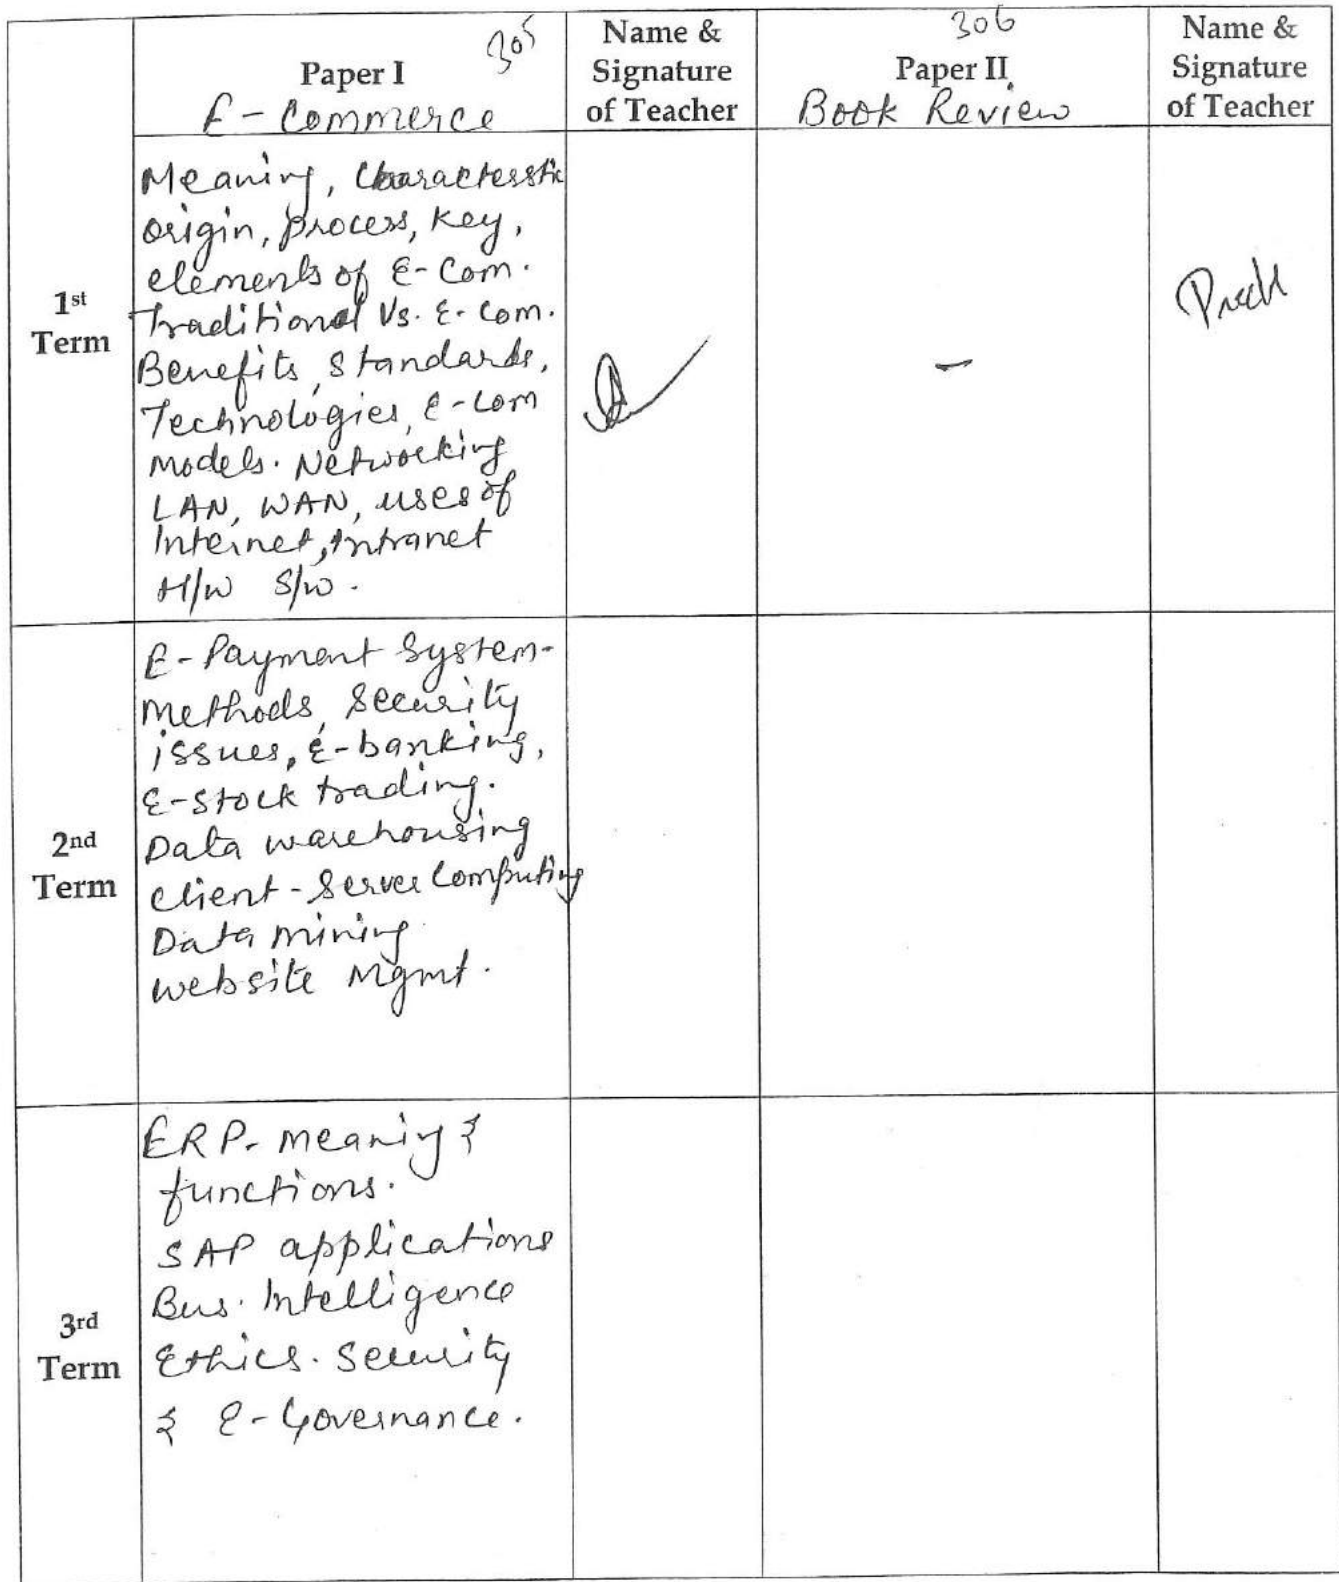 Paper I 305
E-Commerce
Name &
Signature
of Teacher
306
Paper II
Book Review
Name &
Signature
of Teacher
1st
Term
Meaning, Characterstic
origin, process, key,
elements of E-Com.
Traditional Vs. E-Com.
Benefits, Standards,
Technologies, E-Com
Models. Networking
LAN, WAN, uses of
Internet, Intranet
H/W S/W.
-
2nd
Term
E-Payment System-
Methods, Security
issues, E-banking,
E-Stock trading.
Data warehousing
Client-Server Computing
Data mining
website Mgmt.
3rd
Term
ERP- meaning &
functions.
SAP applications
Bus. Intelligence
Ethics. Security
& E-Governance.